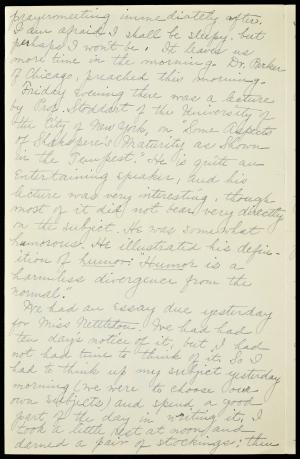 prayermeeting immediately after.
I am afraid I shall be sleepy, but
perhaps I won't be. It leaves us
more time in the morning. Dr. Barker
of Chicago, preached this morning.
Friday Evening there was a lecture
by Prof. Stoddart of the University of
the City of New York, on "Some Aspects
of Shakspere's Maturity as Shown
in the Tempest." He is quite an
Entertaining speaker, and his
lecture was very interesting, though
most of it did not bear very directly
on the subject. He was somewhat
humorous. He illustrated his defin-
ition of humor: "Humor is a
harmless divergence from the
normal.
We had an Essay due yesterday
for Miss Nettleton. We have had
ten days notice of it, but I had
not had time to think of it. So I
had to think up my subject yesterday
morning (we were to choose our
own subjects) and spend a good
part of the day in writing it. I
took a little rest at noon and
darned a pair of stockings; then